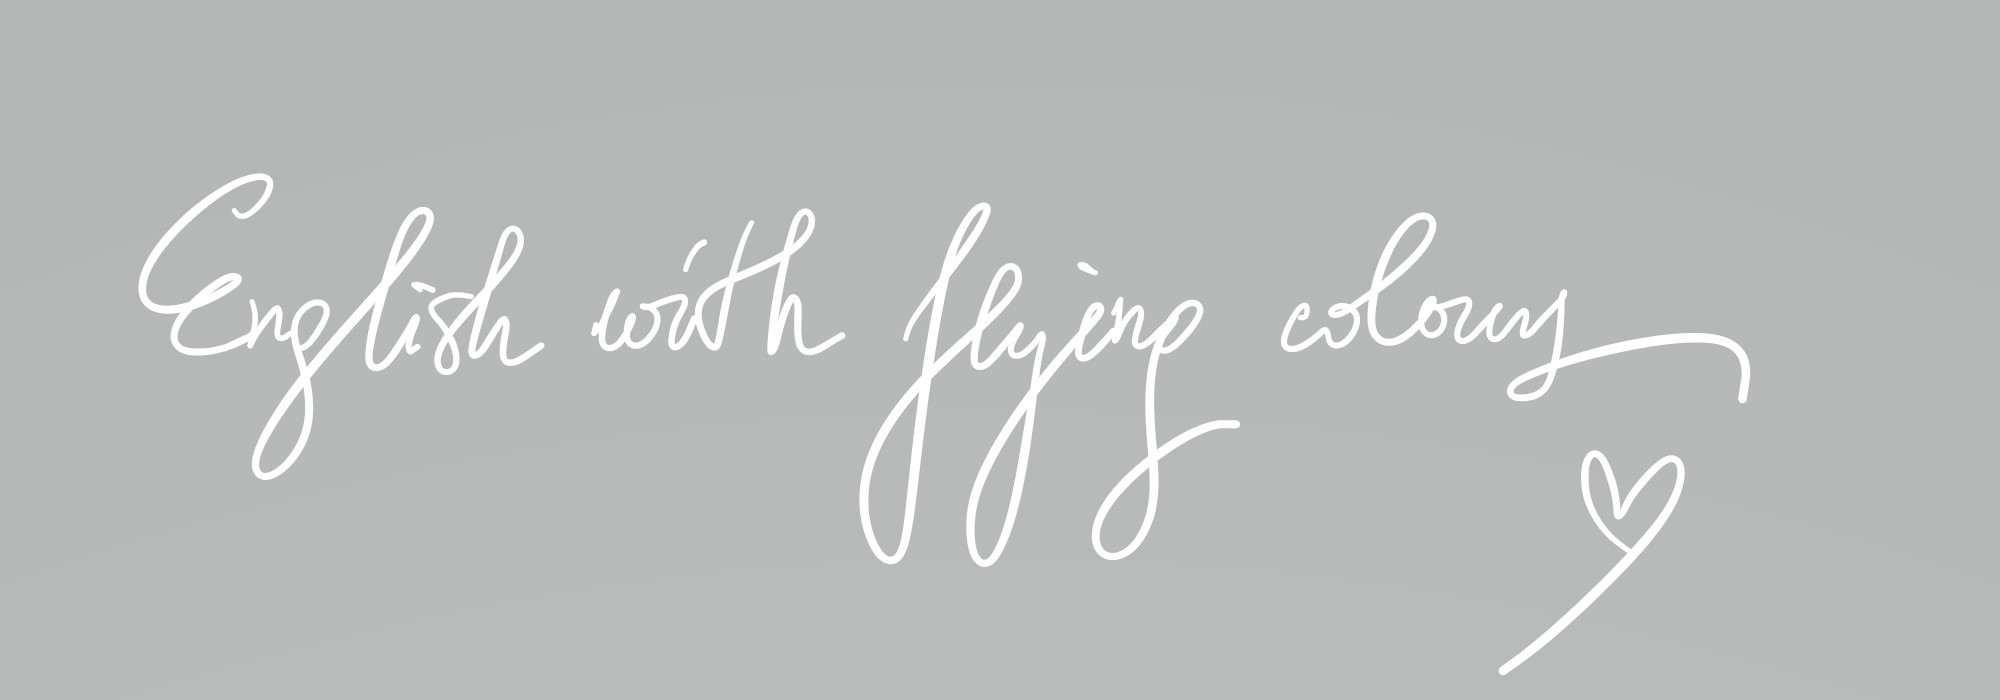 English with flying colours